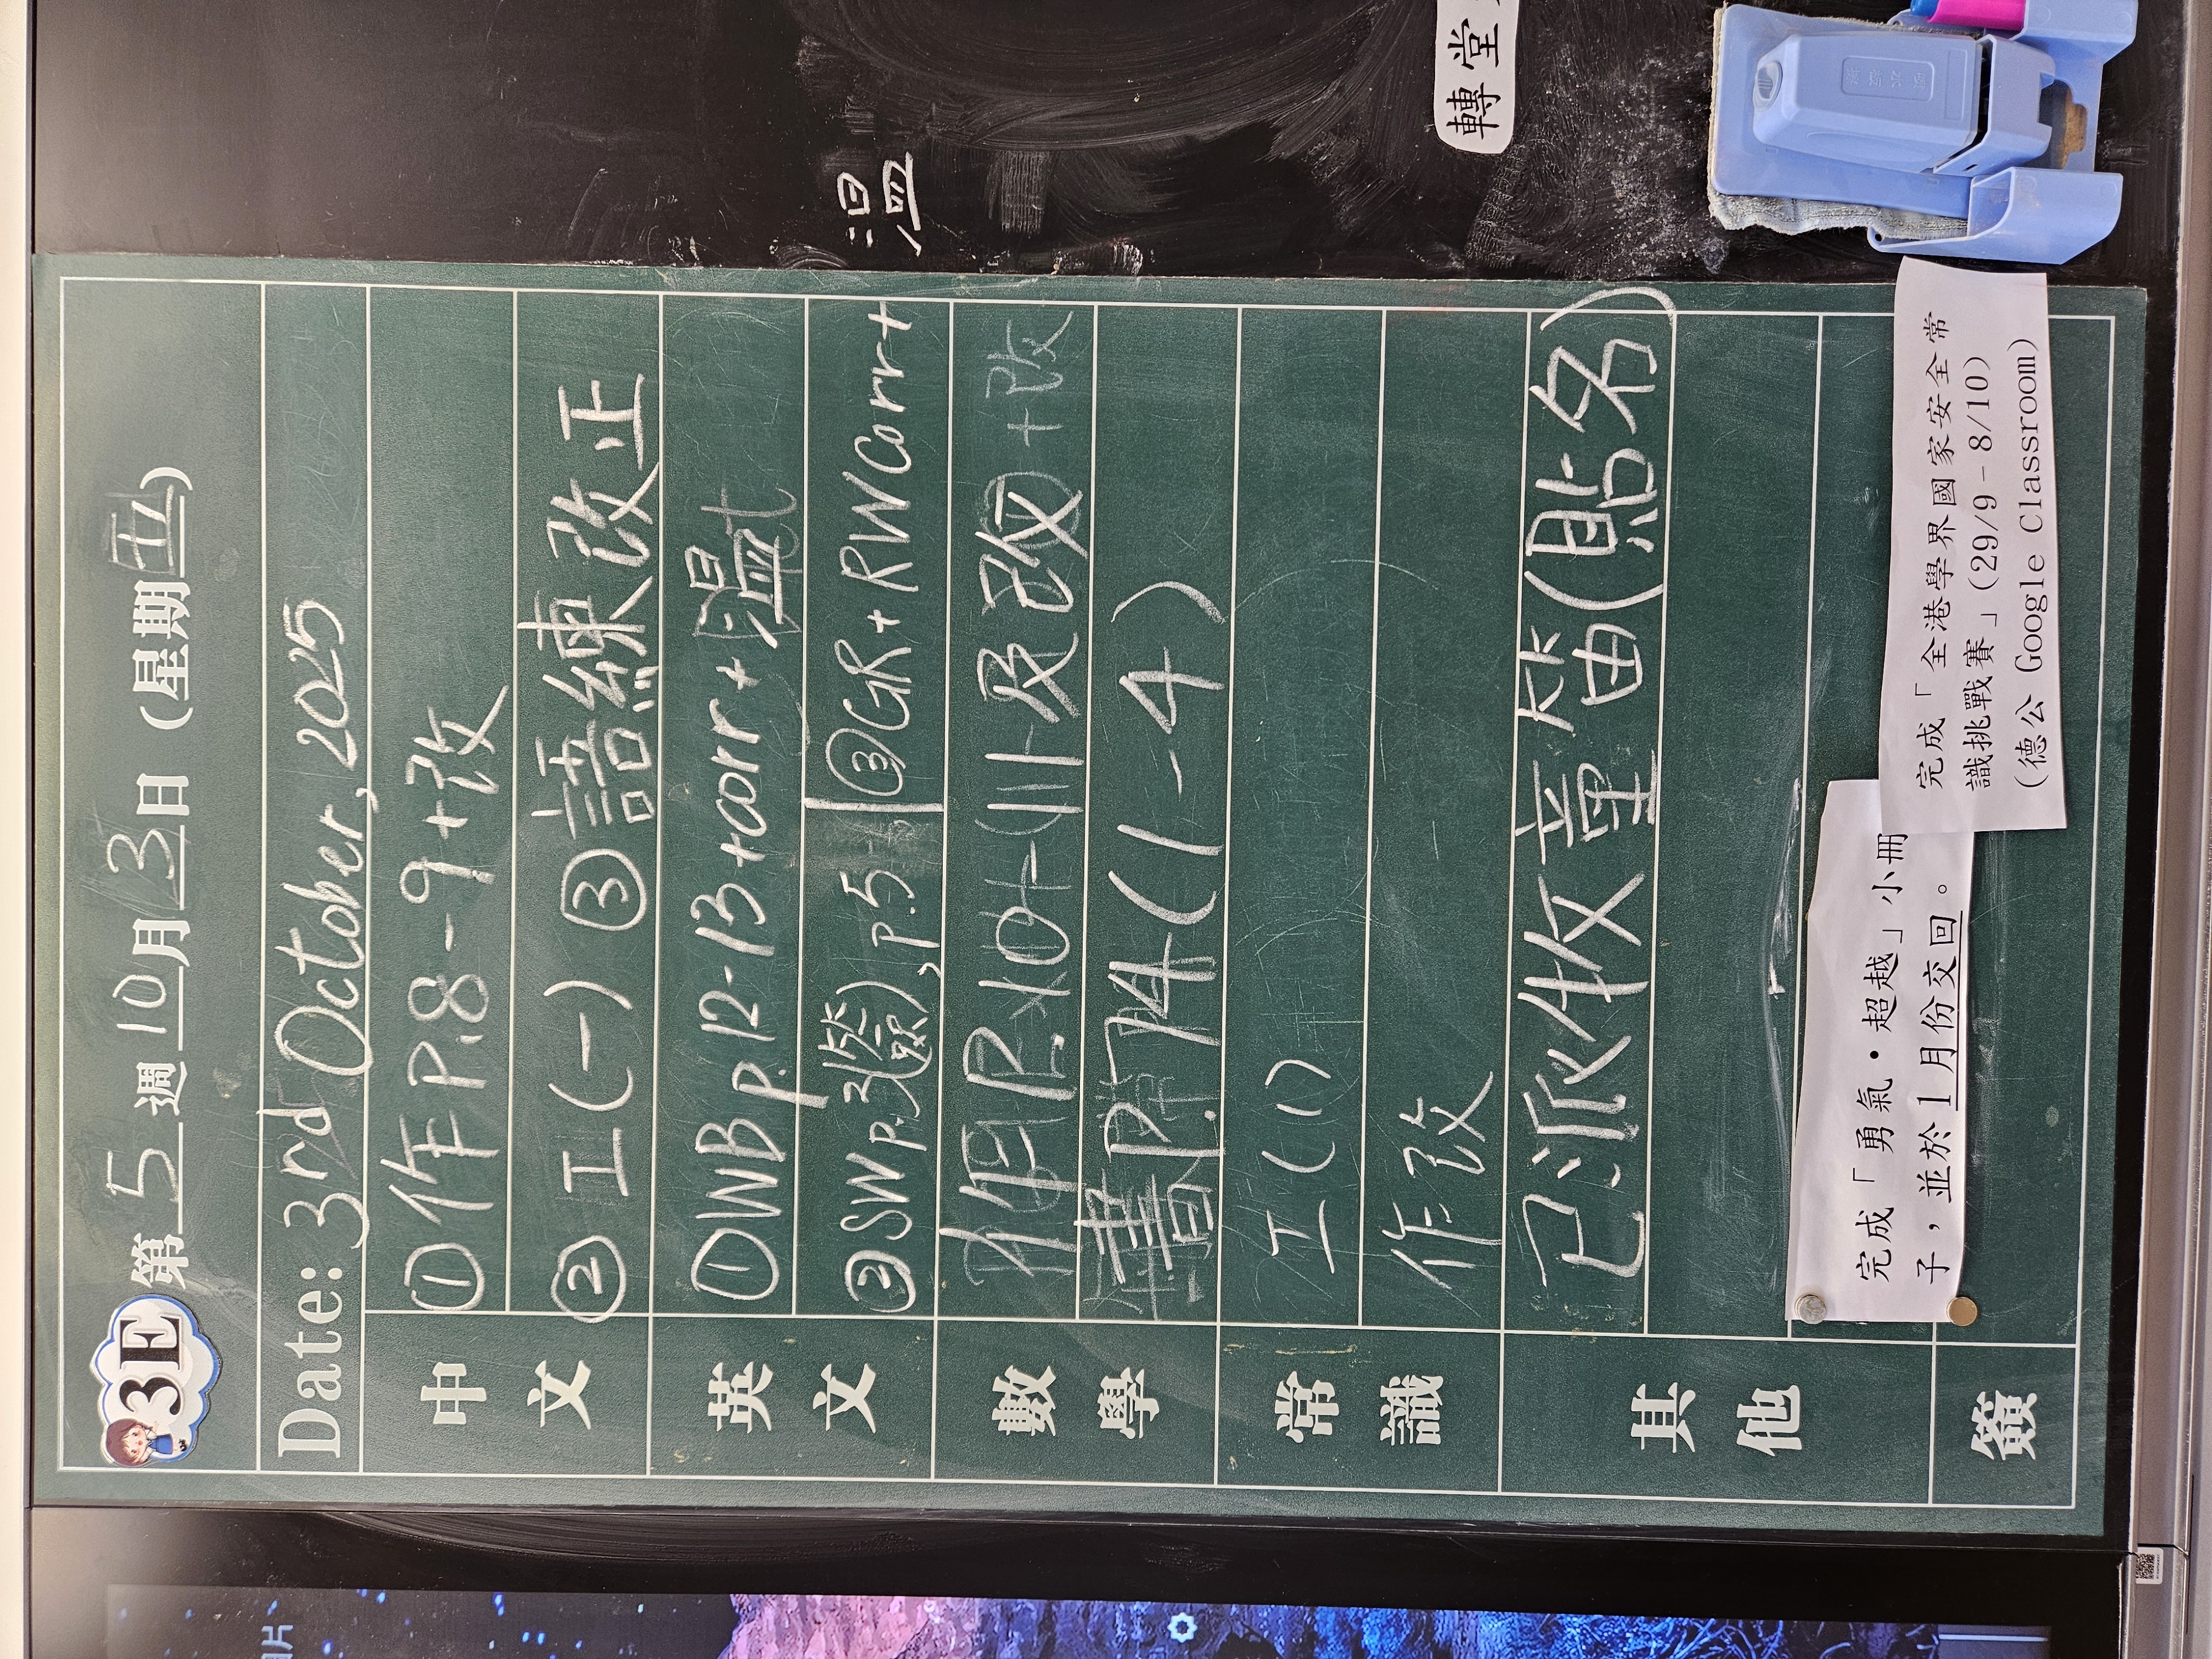 3E 第 5 週 10 月 3 日 (星期五)
Date: 3rd October, 2025
中文
① 作 P.8-9+改
② 工(一) ③ 語練改正
英文
① WB p.12-13 +corr+溫
② SW p.3(簽), p.5 ③ GR + RW Corr+溫
數學
P.10-11 及改
書 P.14 (1-4)
常識
工(1)
作改
其他
已派收章笛(貼名)
完成「勇氣•超越」小冊
子，並於1月份交回。
完成「全港學界國家安全常
識挑戰賽」(29/9-8/10)
(德公 Google Classroom)
簽
轉堂
片